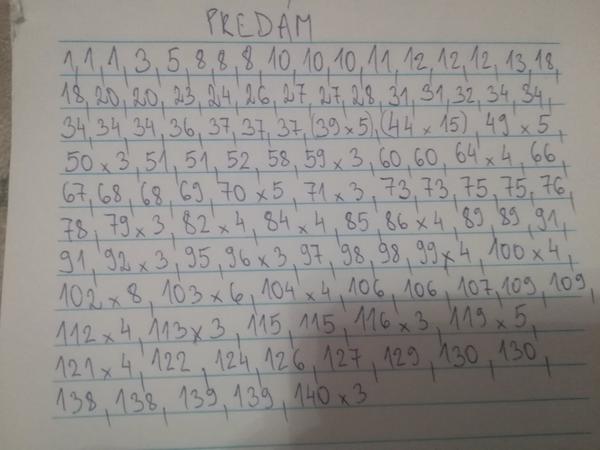 PREDÁM
1, 1, 1, 3, 5, 8, 8, 8, 10, 10, 10, 11, 12, 12, 12, 13, 18,
18, 20, 20, 23, 24, 26, 27, 27, 28, 31, 31, 32, 34, 34,
34, 34, 34, 36, 37, 37, 37, (39 x 5), (44 x 15), 49 x 5,
50 x 3, 51, 51, 52, 58, 59 x 3, 60, 60, 64 x 4, 66,
67, 68, 68, 69, 70 x 5, 71 x 3, 73, 73, 75, 75, 76,
78, 79 x 3, 82 x 4, 84 x 4, 85, 86 x 4, 89, 89, 91,
91, 92 x 3, 95, 96 x 3, 97, 98, 98, 99 x 4, 100 x 4,
102 x 8, 103 x 6, 104 x 4, 106, 106, 107, 109, 109,
112 x 4, 113 x 3, 115, 115, 116 x 3, 119 x 5,
121 x 4, 122, 124, 126, 127, 129, 130, 130,
138, 138, 139, 139, 140 x 3